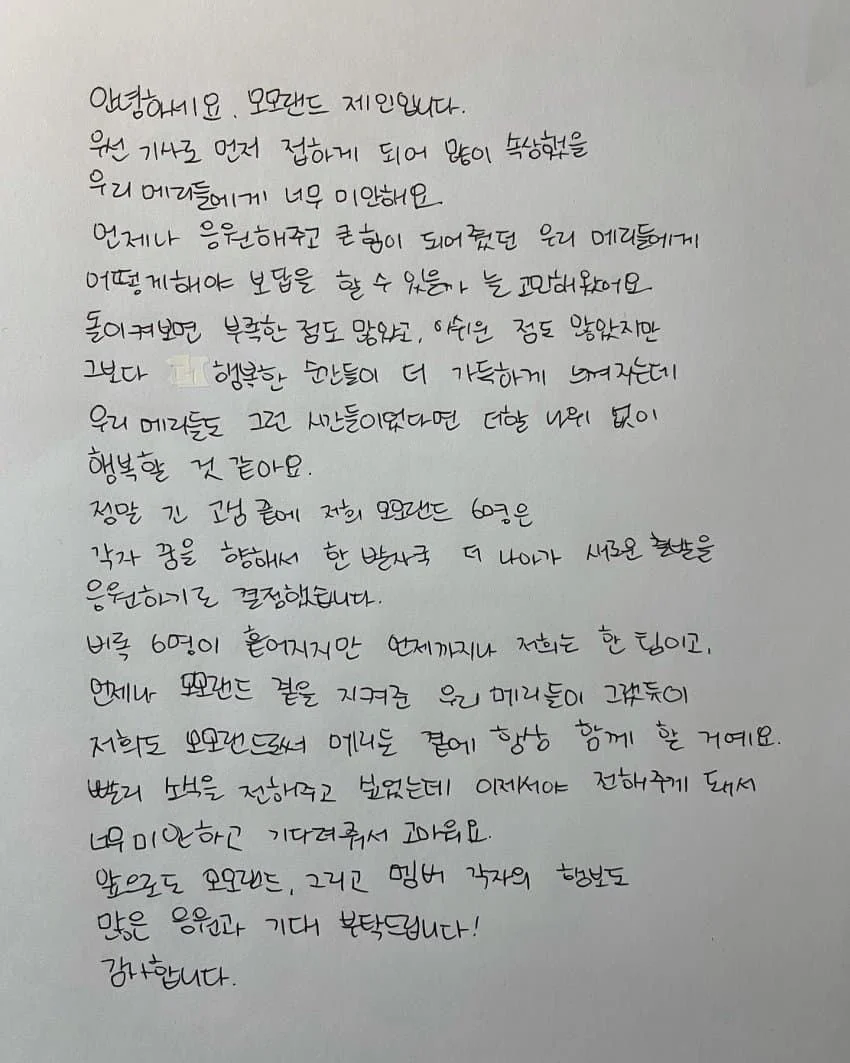 안녕하세요. 모모랜드 제인입니다.
우선 기사로 먼저 접하게 되어 많이 속상했을
우리 메리들에게 너무 미안해요
언제나 응원해주고 큰 힘이 되어줬던 우리 메리들에게
어떻게해야 보답을 할 수 있을까 늘 고민해왔어요
돌이켜보면 부족한 점도 많았고, 아쉬운 점도 많았지만
그보다 행복한 순간들이 더 가득하게 느껴지는데
우리 메리들도 그런 시간들이었다면 더할 나위 없이
행복할 것 같아요.
정말 긴 고심 끝에 저희 모모랜드 6명은
각자 꿈을 향해서 한 발자국 더 나아가 새로운 출발을
응원하기로 결정했습니다.
비록 6명이 흩어지지만 언제까지나 저희는 한 팀이고,
언제나 모모랜드 곁을 지켜준 우리 메리들이 그랬듯이
저희도 모모랜드로써 메리들 곁에 항상 함께 할 거예요.
빨리 소식을 전해주고 싶었는데 이제서야 전해주게 돼서
너무 미안하고 기다려줘서 고마워요.
앞으로도 모모랜드, 그리고 멤버 각자의 행보도
많은 응원과 기대 부탁드립니다!
감사합니다.